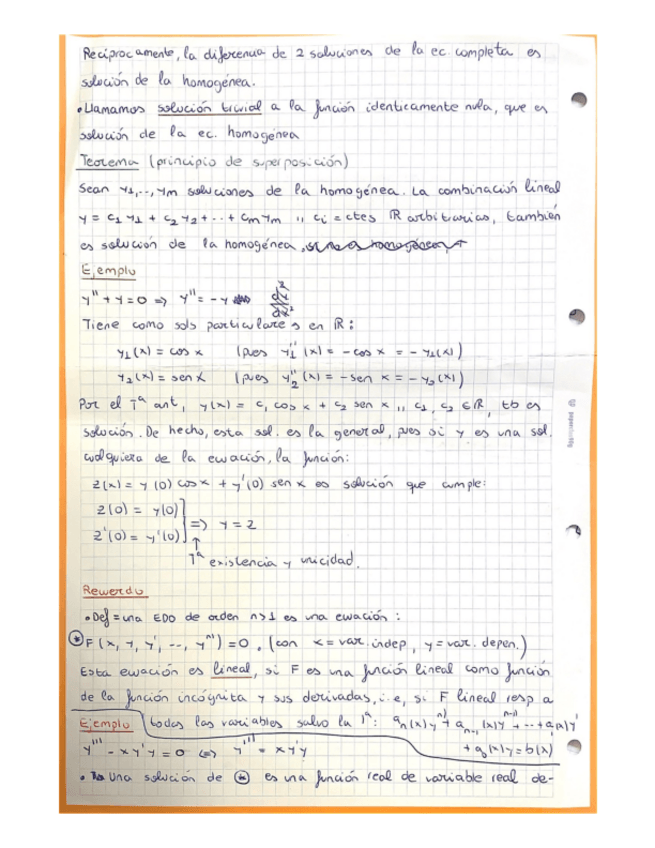 Recíprocamente, la diferencia de 2 soluciones de la ec. completa es
solución de la homogénea.
• Llamamos solución trivial a la función identicamente nula, que es
solución de la ec. homogénea
Teorema (principio de superposición)
Sean y1,..,ym soluciones de la homogénea. La combinación lineal
y = c1 y1 + c2 y2 + ... + cm ym ,, ci = ctes ℝ arbitrarias, también
es solución de la homogénea.
Ejemplo
y'' + y = 0 => y'' = -y
Tiene como sols particulares en ℝ:
y1(x) = cos x (pues y1''(x) = -cos x = -y1(x))
y2(x) = sen x (pues y2''(x) = -sen x = -y2(x))
Por el Tª ant, y(x) = c1 cos x + c2 sen x ,, c1, c2 ∈ ℝ, tb es
solución. De hecho, esta sol. es la general, pues si y es una sol.
cualquiera de la ecuación, la función:
z(x) = y(0) cos x + y'(0) sen x es solución que cumple:
z(0) = y(0)
z'(0) = y'(0) ] => y = z
↑
Tª existencia y unicidad.
Recuerdo
• Def = una EDO de orden n>1 es una ecuación:
⊛ F(x, y, y', --, yⁿ⁾) = 0. (con x = var. indep, y = var. depen.)
Esta ecuación es lineal, si F es una función lineal como función
de la función incógnita y sus derivadas, i.e, si F lineal resp a
todas las variables salvo la 1ª: an(x)yⁿ⁾ + an-1(x)yⁿ⁻¹⁾ + ... + a1(x)y'
+ a0(x)y = b(x)
Ejemplo
y''' - xy'y = 0 <=> y''' = xy'y
• Una solución de ⊛ es una función real de variable real de-